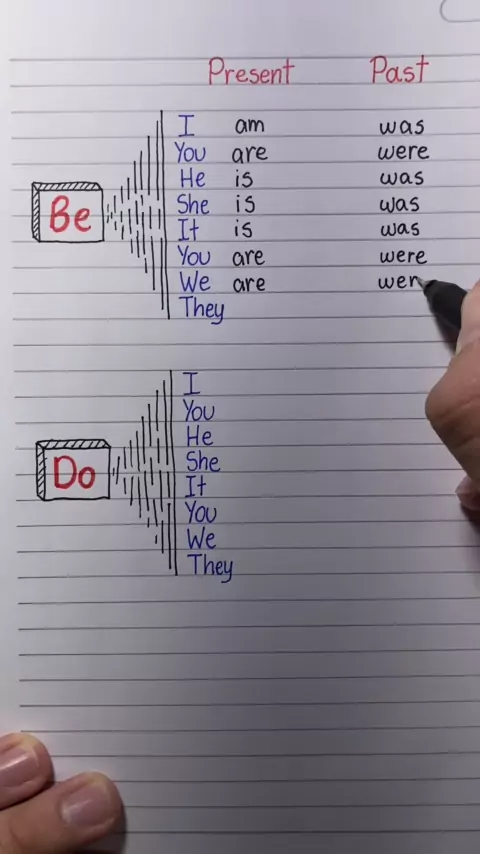 Present Past
I am was
You are were
He is was
Be She is was
It is was
You are were
We are wer
They
I
You
He
Do She
It
You
We
They